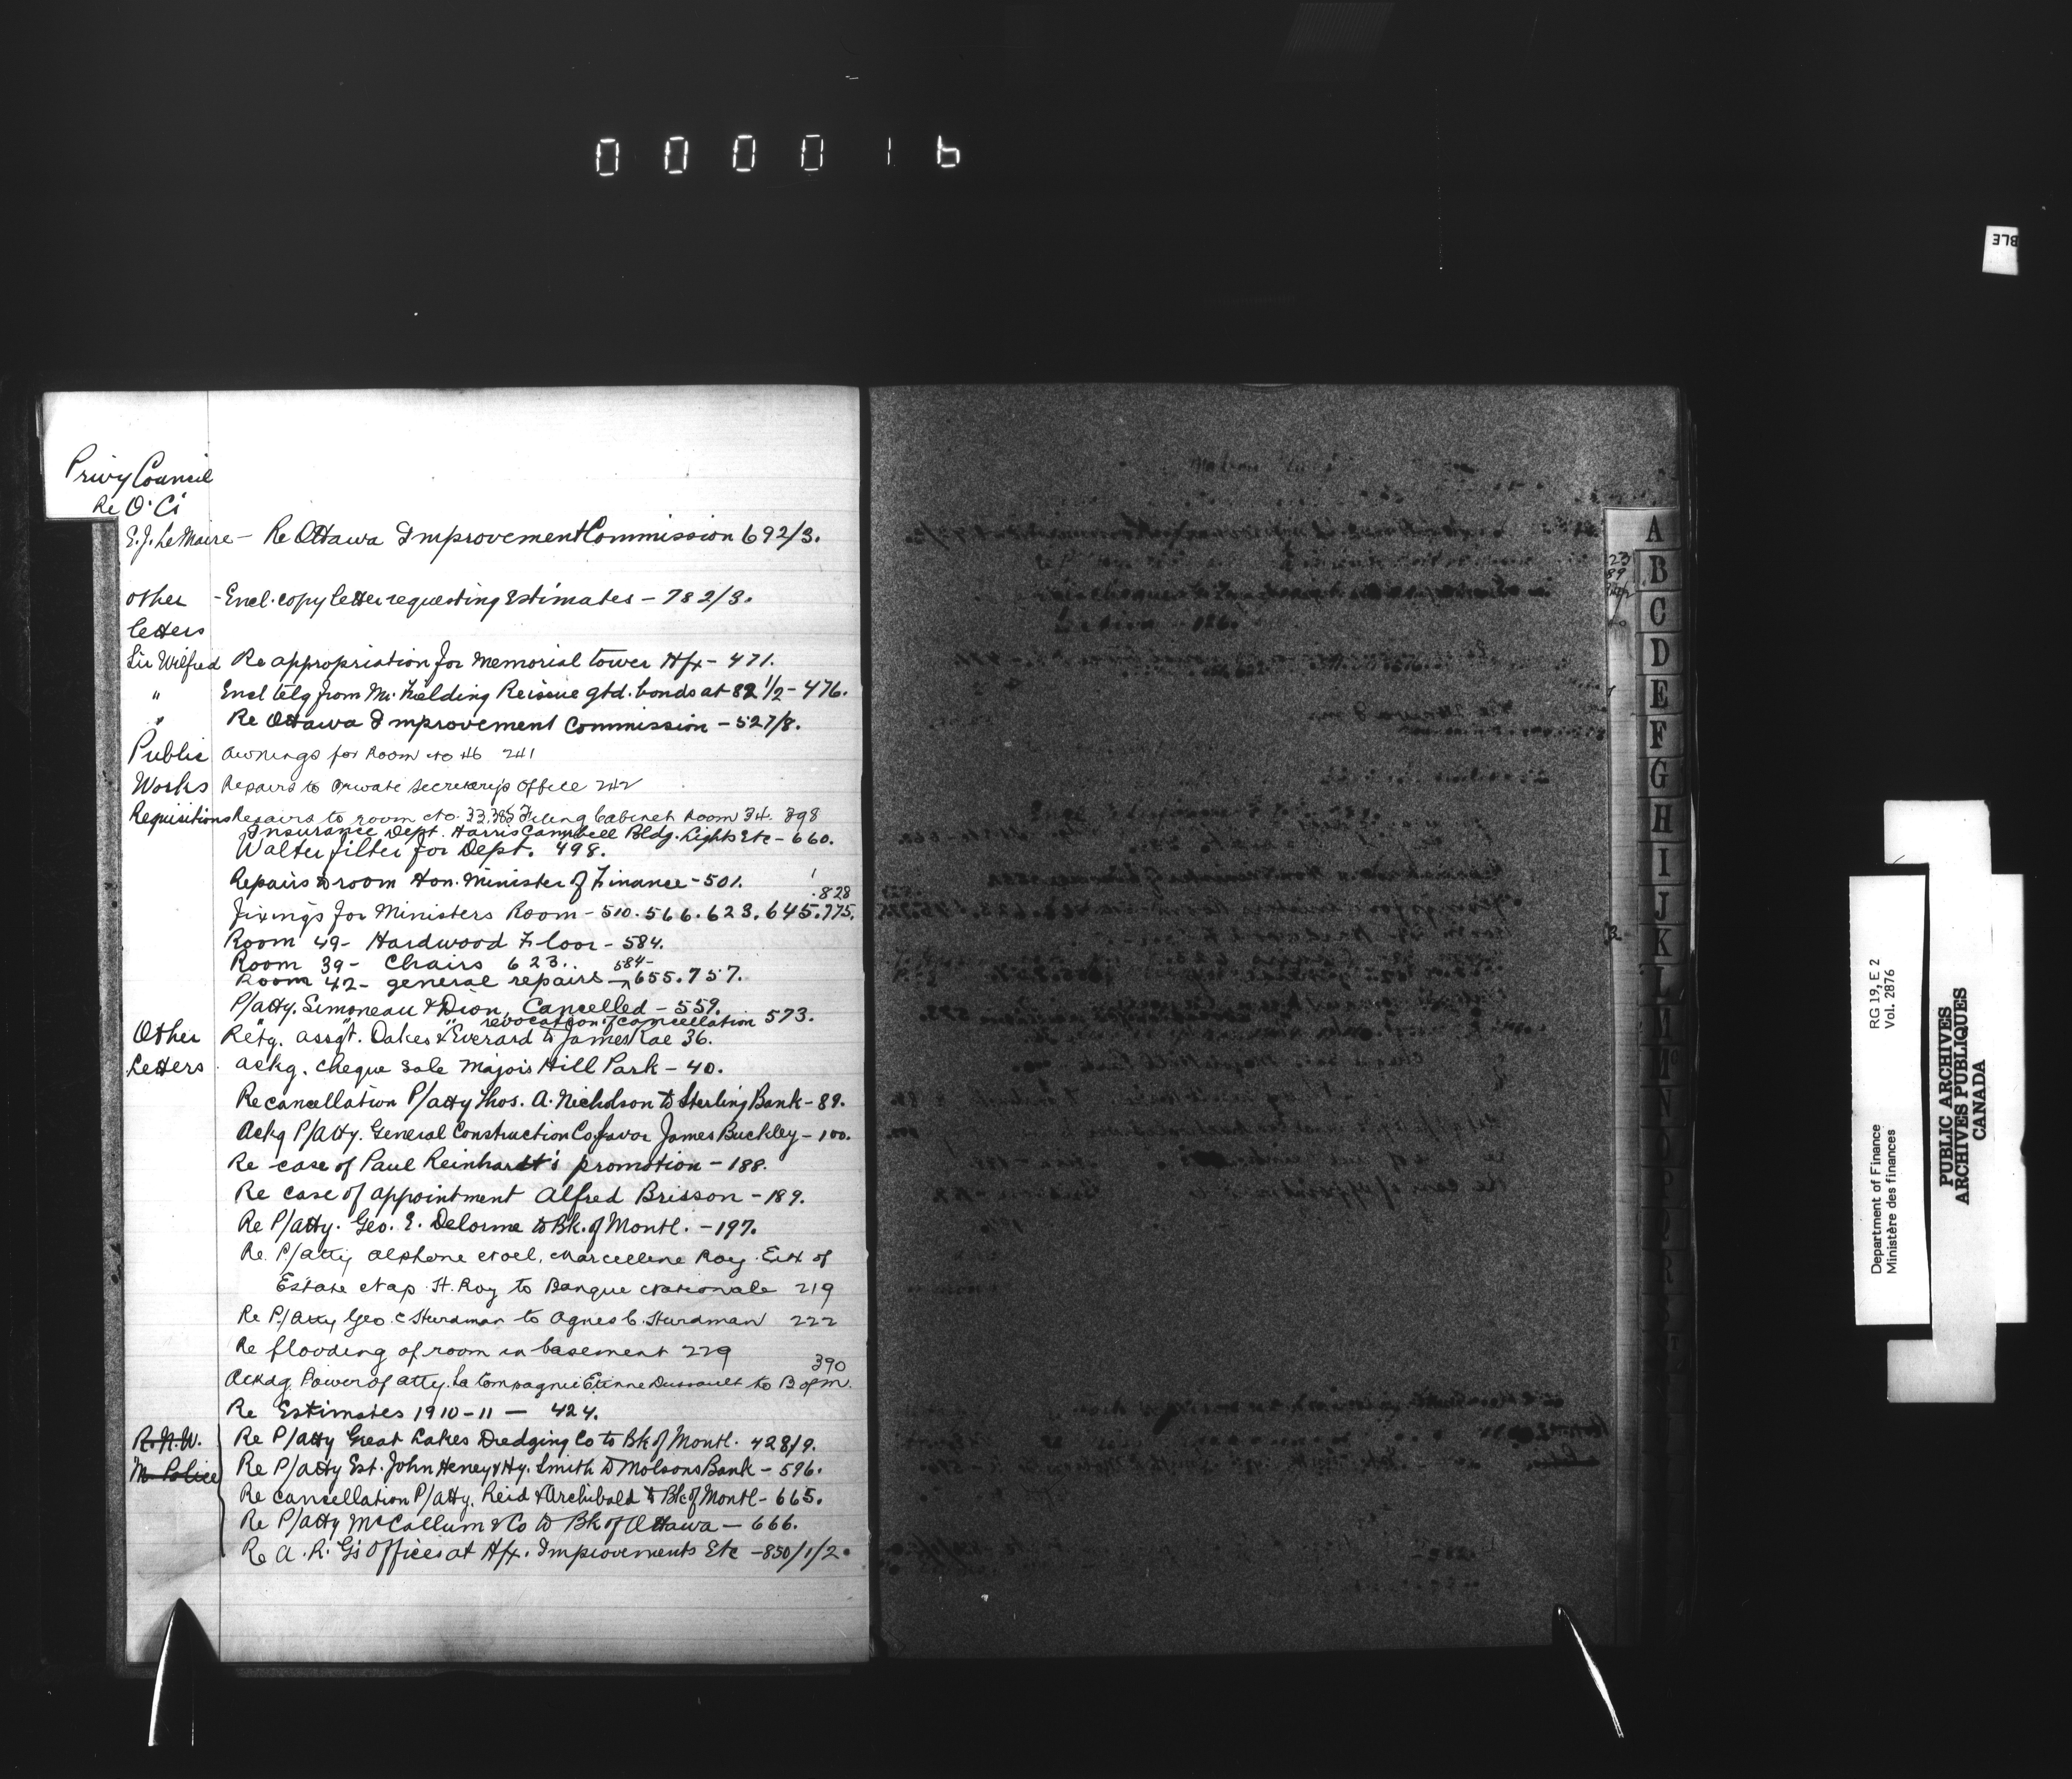 000016
BLE
Privy Council
Re O.C's
E.J. LeMaire - Re Ottawa Improvement Commission 692/3.
other - Encl. copy letter requesting Estimates - 782/3.
letters
Sir Wilfred Re appropriation for memorial tower Hfx - 471.
" Encl telg from Mr. Fielding Re issue gtd. bonds at 82 1/2 - 476.
" Re Ottawa Improvement Commission - 527/8.
Public Awnings for Room No 46 241
Works Repairs to Private Secretary's Office 242
Requisitions Repairs to room No. 33. Filing Cabinet Room 34. 398
Insurance Dept. Harris Campbell Bldg. Lights Etc - 660.
Walter filter for Dept. 498.
Repairs to room Hon. Minister of Finance - 501.
.828
fixings for Ministers Room - 510. 566. 623. 645. 775.
Room 49 - Hardwood Floor - 584.
Room 39 - Chairs 623..
584-
Room 42 - general repairs - 655. 757.
P/atty. Simoneau & Dion, Cancelled - 559.
" " " " revocation of cancellation 573.
Other Retg. assgt. Oakes & Everard to James Rae 36.
Letters ackg. cheque sale Majors Hill Park - 40.
Re cancellation P/atty Thos. A. Nicholson to Sterling Bank - 89.
Ackg P/Atty. General Construction Co favor James Buckley - 100.
Re case of Paul Reinhardt's promotion - 188.
Re case of appointment Alfred Brisson - 189.
Re P/atty. Geo. E. Delorme to Bk. of Montl. - 197.
Re. P/atty Alphone Noel, Marcelline Roy Exix of
Estate Nap. H. Roy to Banque Nationale 219
Re P/Atty Geo. C Hurdman to Agnes C. Hurdman 222
Re flooding of room in basement 229
390
Ackdg. Power of atty. La Compagnie Etienne Dussault to B of M.
Re Estimates 1910-11 - 424.
R.N.W. Re P/atty Great Lakes Dredging Co to Bk of Montl. 428/9.
M. Police Re P/atty Est. John Heney & Hy. Smith to Molsons Bank - 596.
Re cancellation P/atty. Reid & Archibald to Bk of Montl - 665.
Re P/atty McCallum & Co to Bk of Ottawa - 666.
Re A.R.G's Offices at Hfx. Improvements Etc - 850/1/2.
23
89
A
B
C
D
E
F
G
H
I
J
K
L
M
Mc
N
O
P
Q
R
S
Department of Finance
Ministère des finances
RG 19, E 2
Vol. 2876
PUBLIC ARCHIVES
ARCHIVES PUBLIQUES
CANADA